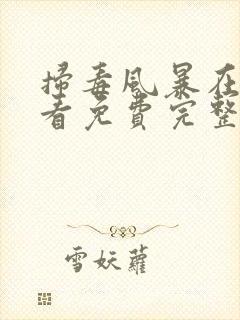 掃毒風暴在
看免費完整
雪妖蘿